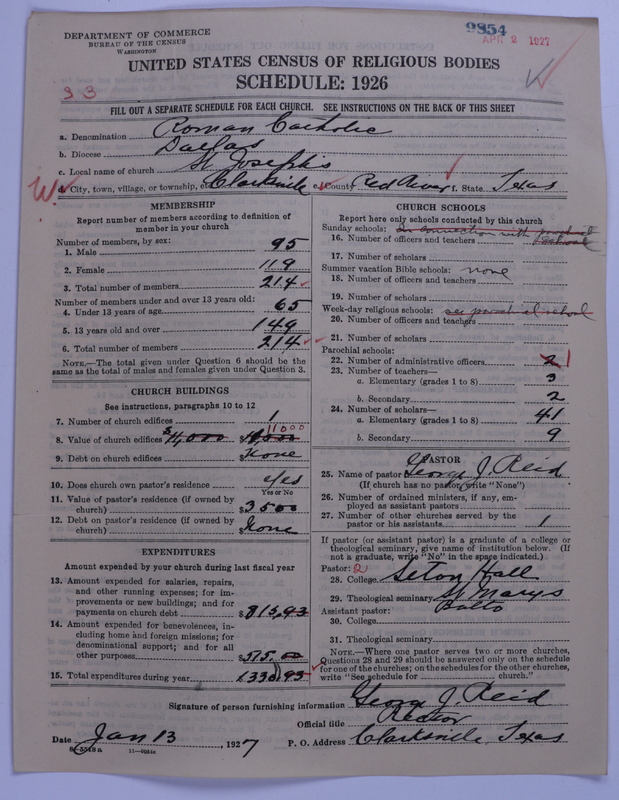 DEPARTMENT OF COMMERCE
BUREAU OF THE CENSUS
WASHINGTON
9854
APR 2 1927
UNITED STATES CENSUS OF RELIGIOUS BODIES
SCHEDULE: 1926
33
FILL OUT A SEPARATE SCHEDULE FOR EACH CHURCH. SEE INSTRUCTIONS ON THE BACK OF THIS SHEET
a. Denomination Roman Catholic
b. Diocese Dallas
c. Local name of church St Joseph's
d. City, town, village, or township, etc. Clarksville e. County Red River f. State Texas
MEMBERSHIP
Report number of members according to definition of
member in your church
Number of members, by sex:
1. Male 95
2. Female 119
3. Total number of members 214
Number of members under and over 13 years old:
4. Under 13 years of age 65
5. 13 years old and over 149
6. Total number of members 214
NOTE.—The total given under Question 6 should be the
same as the total of males and females given under Question 3.
CHURCH BUILDINGS
See instructions, paragraphs 10 to 12
7. Number of church edifices 1
8. Value of church edifices $11,000 $ 11000
9. Debt on church edifices $ None
10. Does church own pastor's residence yes
Yes or No
11. Value of pastor's residence (if owned by
church) $3500
12. Debt on pastor's residence (if owned by
church) $ None
EXPENDITURES
Amount expended by your church during last fiscal year
13. Amount expended for salaries, repairs,
and other running expenses; for im-
provements or new buildings; and for
payments on church debt $815,93
14. Amount expended for benevolences, in-
cluding home and foreign missions; for
denominational support; and for all
other purposes $515.00
15. Total expenditures during year 1330.93
CHURCH SCHOOLS
Report here only schools conducted by this church
Sunday schools: in connection with parochial
16. Number of officers and teachers school
17. Number of scholars
Summer vacation Bible schools: none
18. Number of officers and teachers
19. Number of scholars
Week-day religious schools: see parochial school
20. Number of officers and teachers
21. Number of scholars
Parochial schools:
22. Number of administrative officers 2 1
23. Number of teachers—
a. Elementary (grades 1 to 8) 3
b. Secondary 2
24. Number of scholars—
a. Elementary (grades 1 to 8) 41
b. Secondary 9
PASTOR
25. Name of pastor George J. Reid
(If church has no pastor, write "None")
26. Number of ordained ministers, if any, em-
ployed as assistant pastors
27. Number of other churches served by the
pastor or his assistants 1
If pastor (or assistant pastor) is a graduate of a college or
theological seminary, give name of institution below. (If
not a graduate, write "No" in the space indicated.)
Pastor: 2
28. College Seton Hall
29. Theological seminary St Marys
Assistant pastor: Balto
30. College
31. Theological seminary
NOTE.—Where one pastor serves two or more churches,
Questions 28 and 29 should be answered only on the schedule
for one of the churches; on the schedules for the other churches,
write "See schedule for church."
Signature of person furnishing information George J. Reid
Official title Rector
Date Jan 13, 1927 P. O. Address Clarksville, Texas
11—9034a